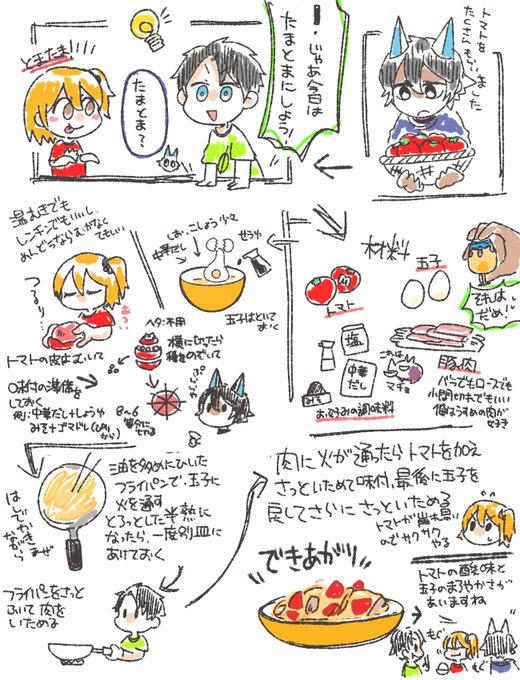 トマトを
たくさんもらいました
！じゃあ今日は
たまとまにしよう！
とまたま！！！
たまとま？
材料
玉子
トマト
それは
だめ！
塩
みそ
中華
だし
これは
マヨ
お好みの調味料
豚肉
バラでもロースでも
小間切れでもいい
俺はうすめの肉が
好き
しお、こしょう少々
中華だし
玉子はといて
おく
湯むきでも
レンチンでもいいし、
めんどうならむかなく
てもいい
つるり
あつい
トマトの皮はむいて
ヘタ：不用
横に切ったら
種をのぞいて
8〜6
等分に
する
○味付の準備を
しておく
例：中華だし＋しょうゆ
みそ＋ゴマドレ
油を多めにひいた
フライパンで、玉子に
火を通す
とろっとした半熟に
なったら、一度別皿に
あけておく
はしでかきまぜ
ながら
フライパンをさっと
ふいて肉を
いためる
肉に火が通ったらトマトを加え
さっといためて味付、最後に玉子を
戻してさらにさっといためる
トマトが
のでサクサク
やる
できあがり
トマトの酸味と
玉子のまろやかさが
あいますね
もぐ
もぐ